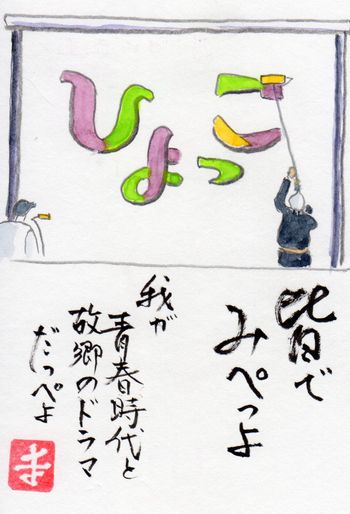 ひよっこ
皆で
みぺっよ
我が
青春時代と
故郷のドラマ
だっぺよ
ま